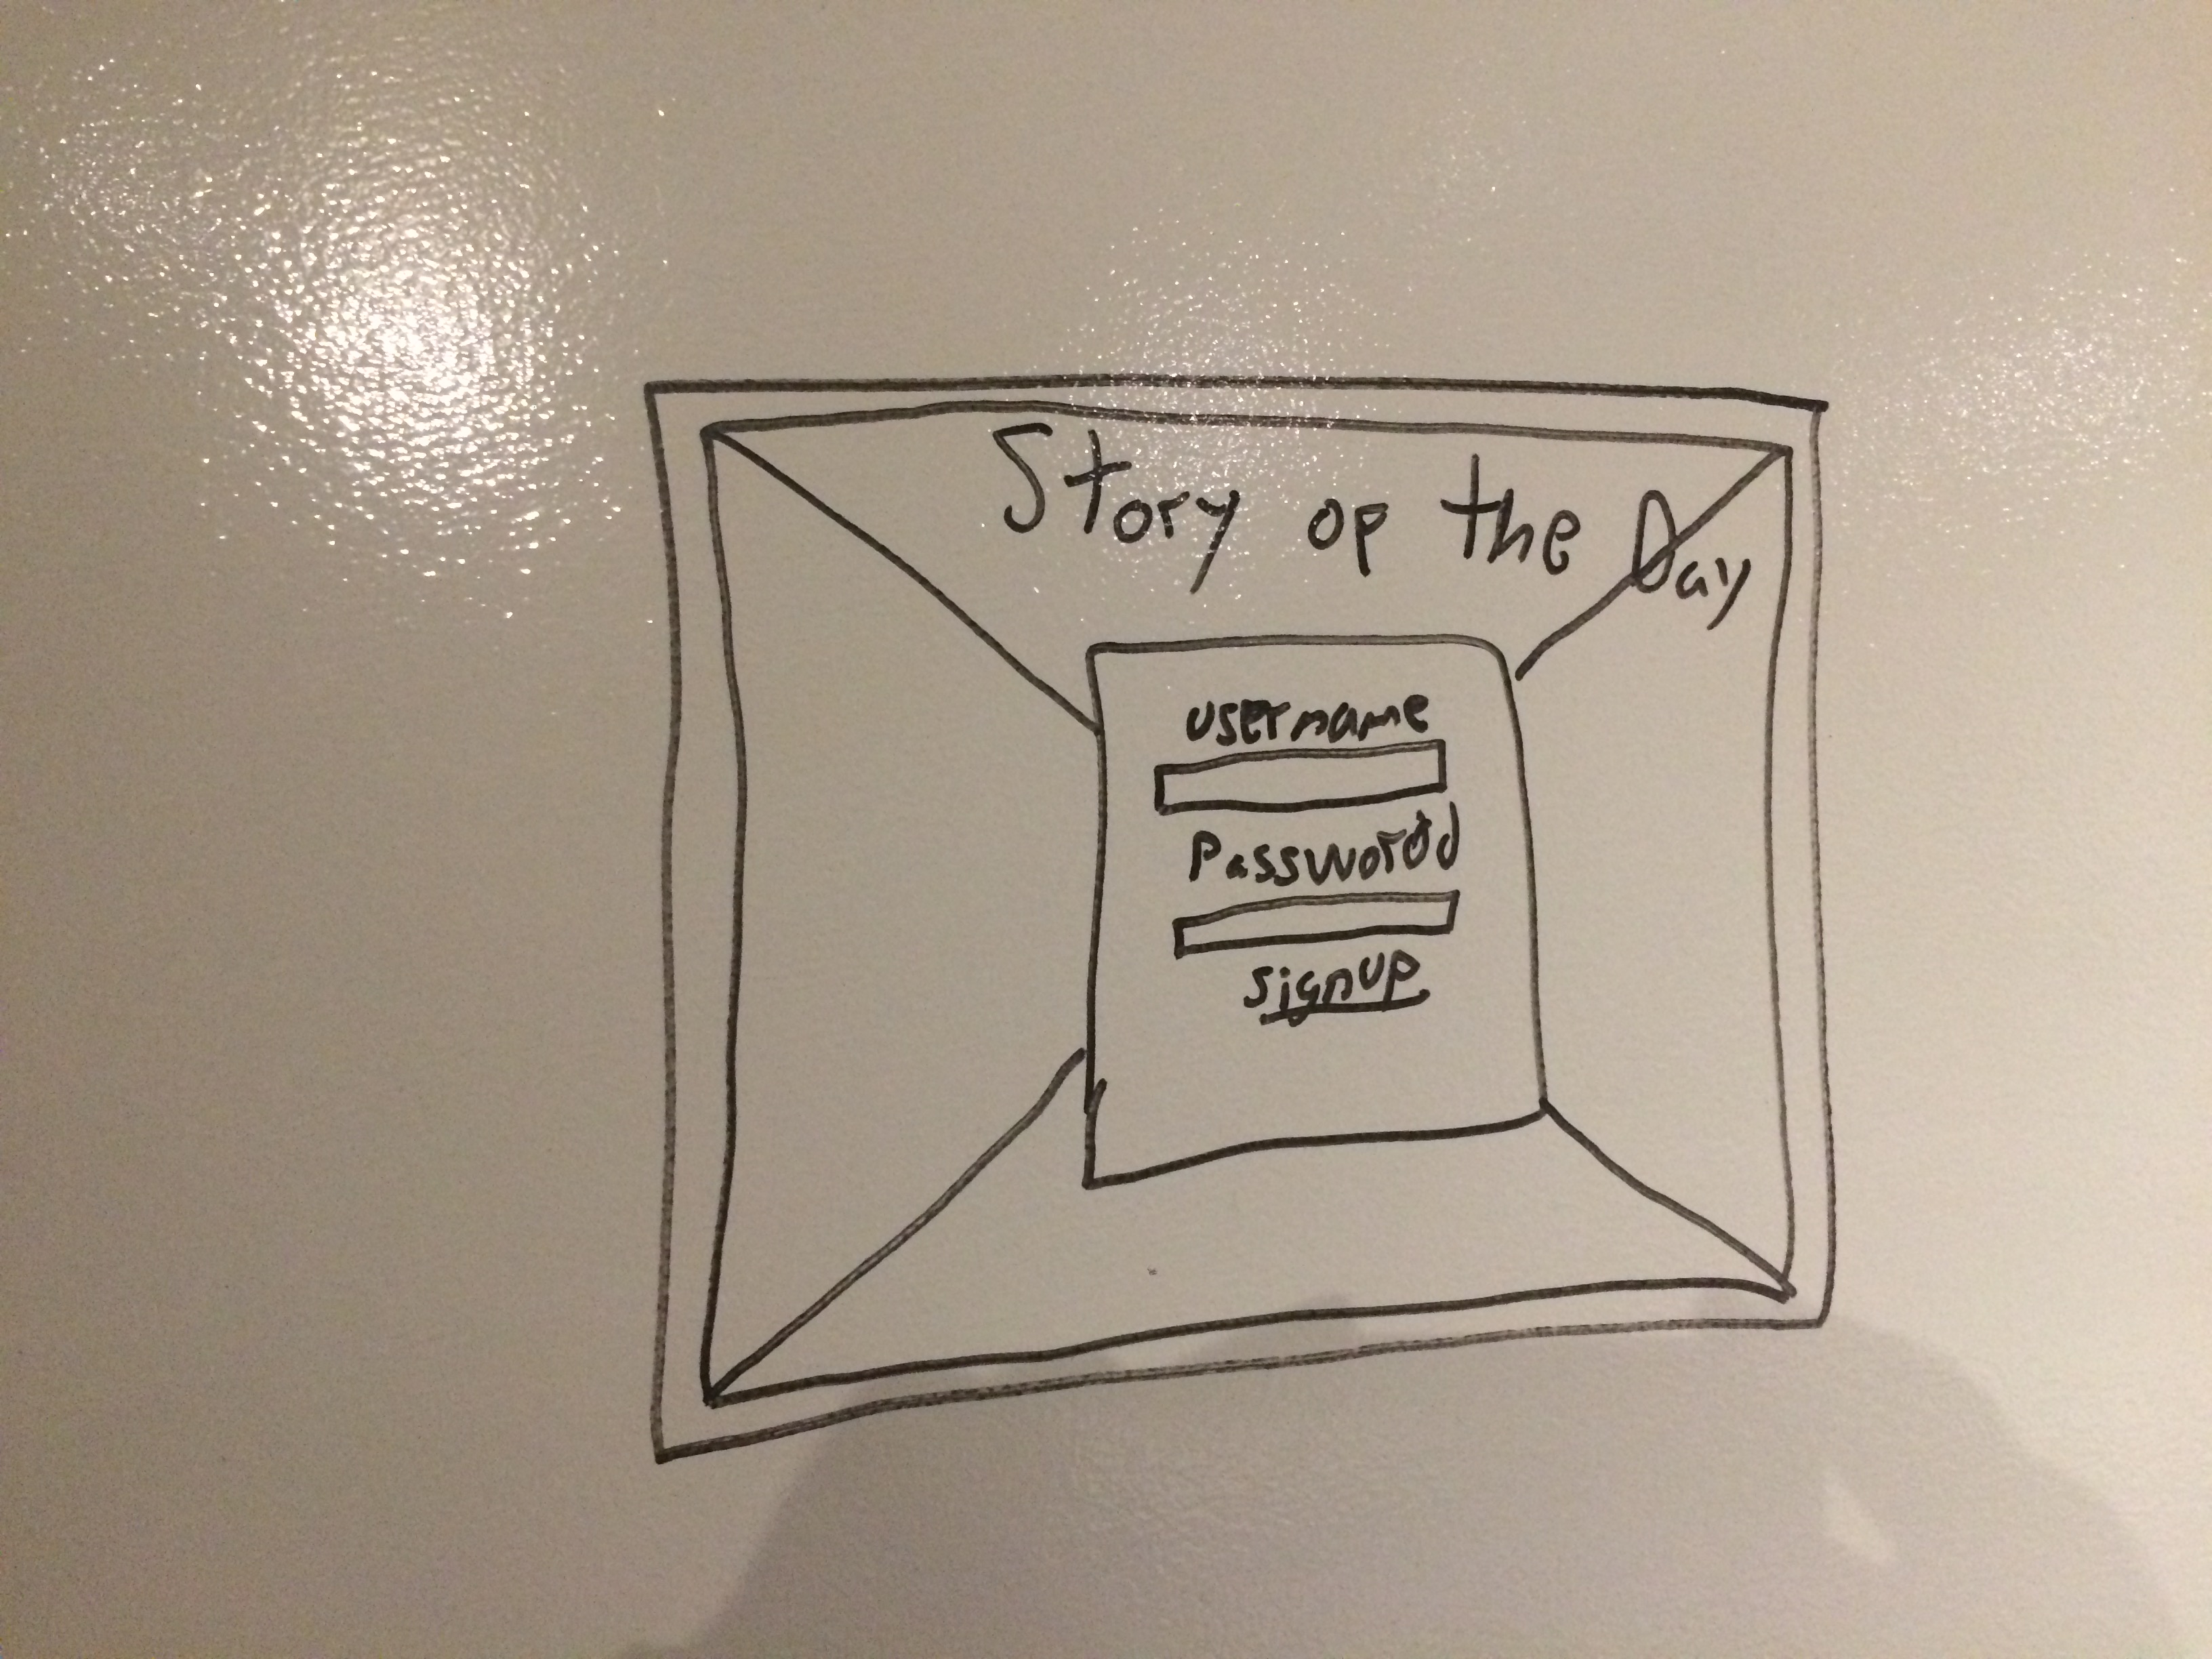 Story op the Day
username
Password
signup